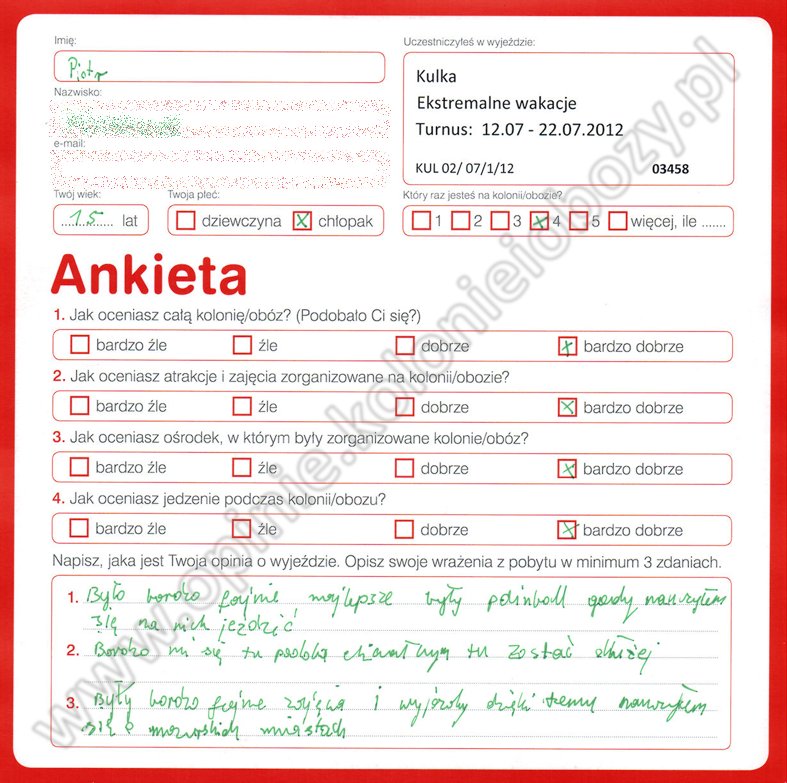 Imię:
Piotr
Nazwisko:
e-mail:
Twój wiek:
15 lat
Twoja płeć:
dziewczyna x chłopak
Uczestniczyłeś w wyjeździe:
Kulka
Ekstremalne wakacje
Turnus: 12.07 - 22.07.2012
KUL 02/ 07/1/12 03458
Który raz jesteś na kolonii/obozie?
1 2 3 x 4 5 więcej, ile .......
Ankieta
1. Jak oceniasz całą kolonię/obóz? (Podobało Ci się?)
bardzo źle źle dobrze x bardzo dobrze
2. Jak oceniasz atrakcje i zajęcia zorganizowane na kolonii/obozie?
bardzo źle źle dobrze x bardzo dobrze
3. Jak oceniasz ośrodek, w którym były zorganizowane kolonie/obóz?
bardzo źle źle dobrze x bardzo dobrze
4. Jak oceniasz jedzenie podczas kolonii/obozu?
bardzo źle źle dobrze x bardzo dobrze
Napisz, jaka jest Twoja opinia o wyjeździe. Opisz swoje wrażenia z pobytu w minimum 3 zdaniach.
1. Było bardzo fajnie najlepsze były nauczyłem
się na nich jeździć
2. Bardzo mi się tu podoba chciałbym tu zostać dłużej
3. Były bardzo fajne zajęcia i wyjazdy dzięki temu nauczyłem
się o mazurskich miastach
www.opinie.kolonieiobozy.pl